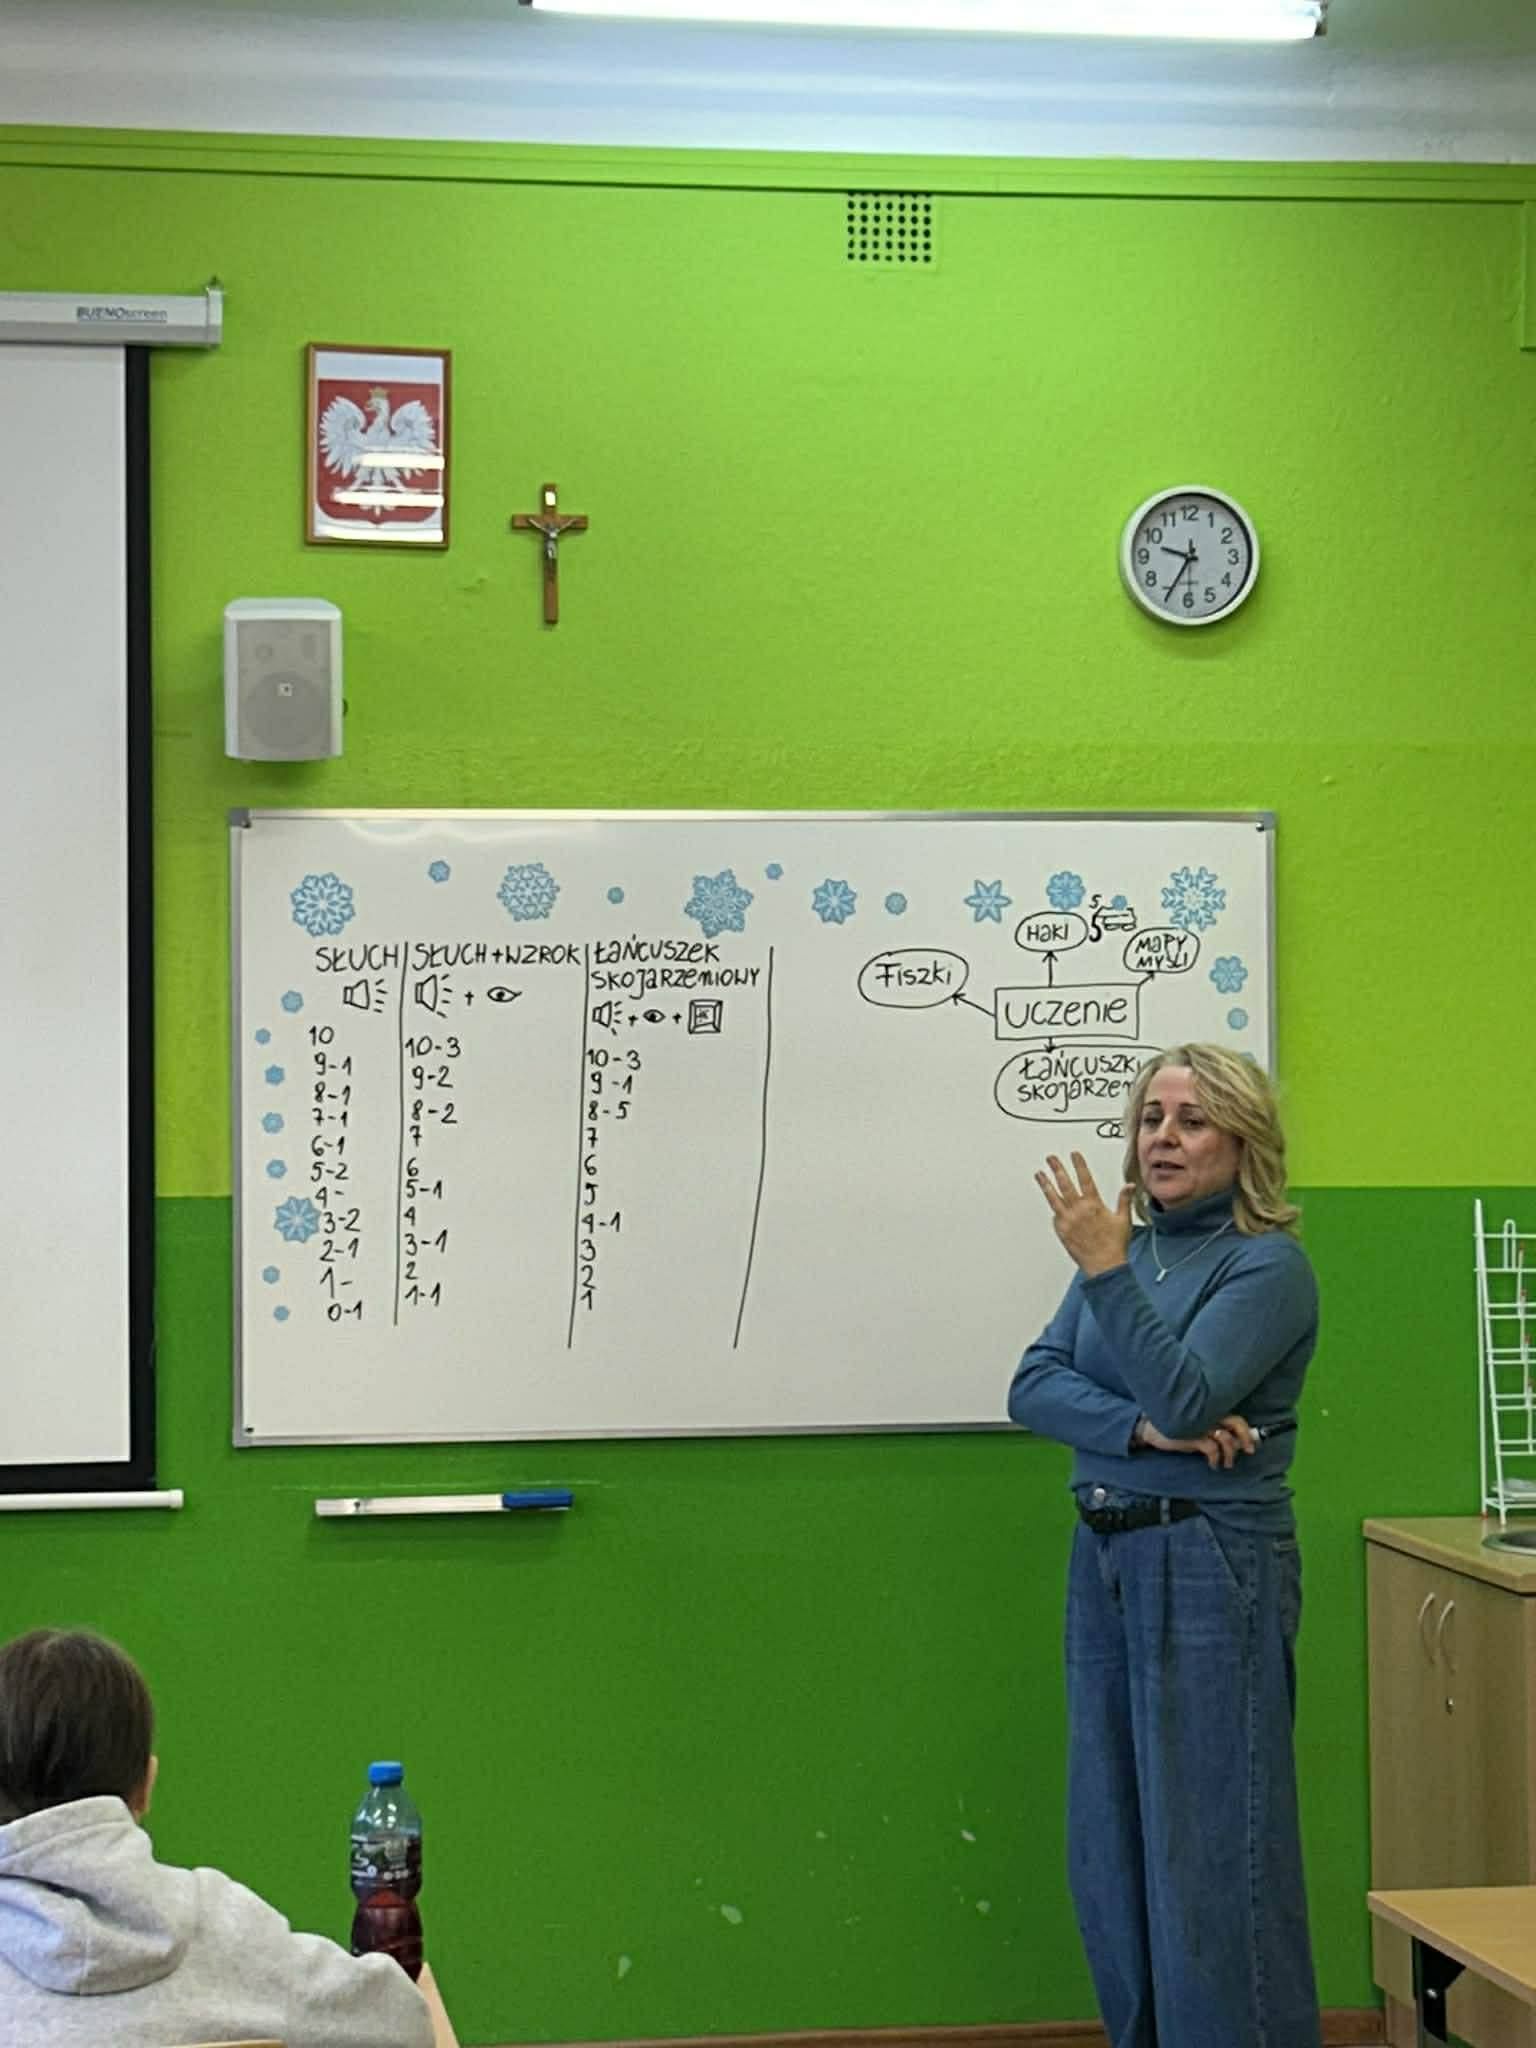 BUENOscreen
12
11 1
10 2
9 3
8 4
6 5
SŁUCH
10
9-1
8-1
7-1
6-1
5-2
4-
3-2
2-1
1-
0-1
SŁUCH+WZROK
+
10-3
9-2
8-2
7
6
5-1
4
3-1
2
1-1
ŁAŃCUSZEK
SKOJARZENIOWY
+ +
10-3
9-1
8-5
7
6
5
4-1
3
2
1
HAKI
5
5
MAPY
MYŚLI
Fiszki
UCZENIE
ŁAŃCUSZKI